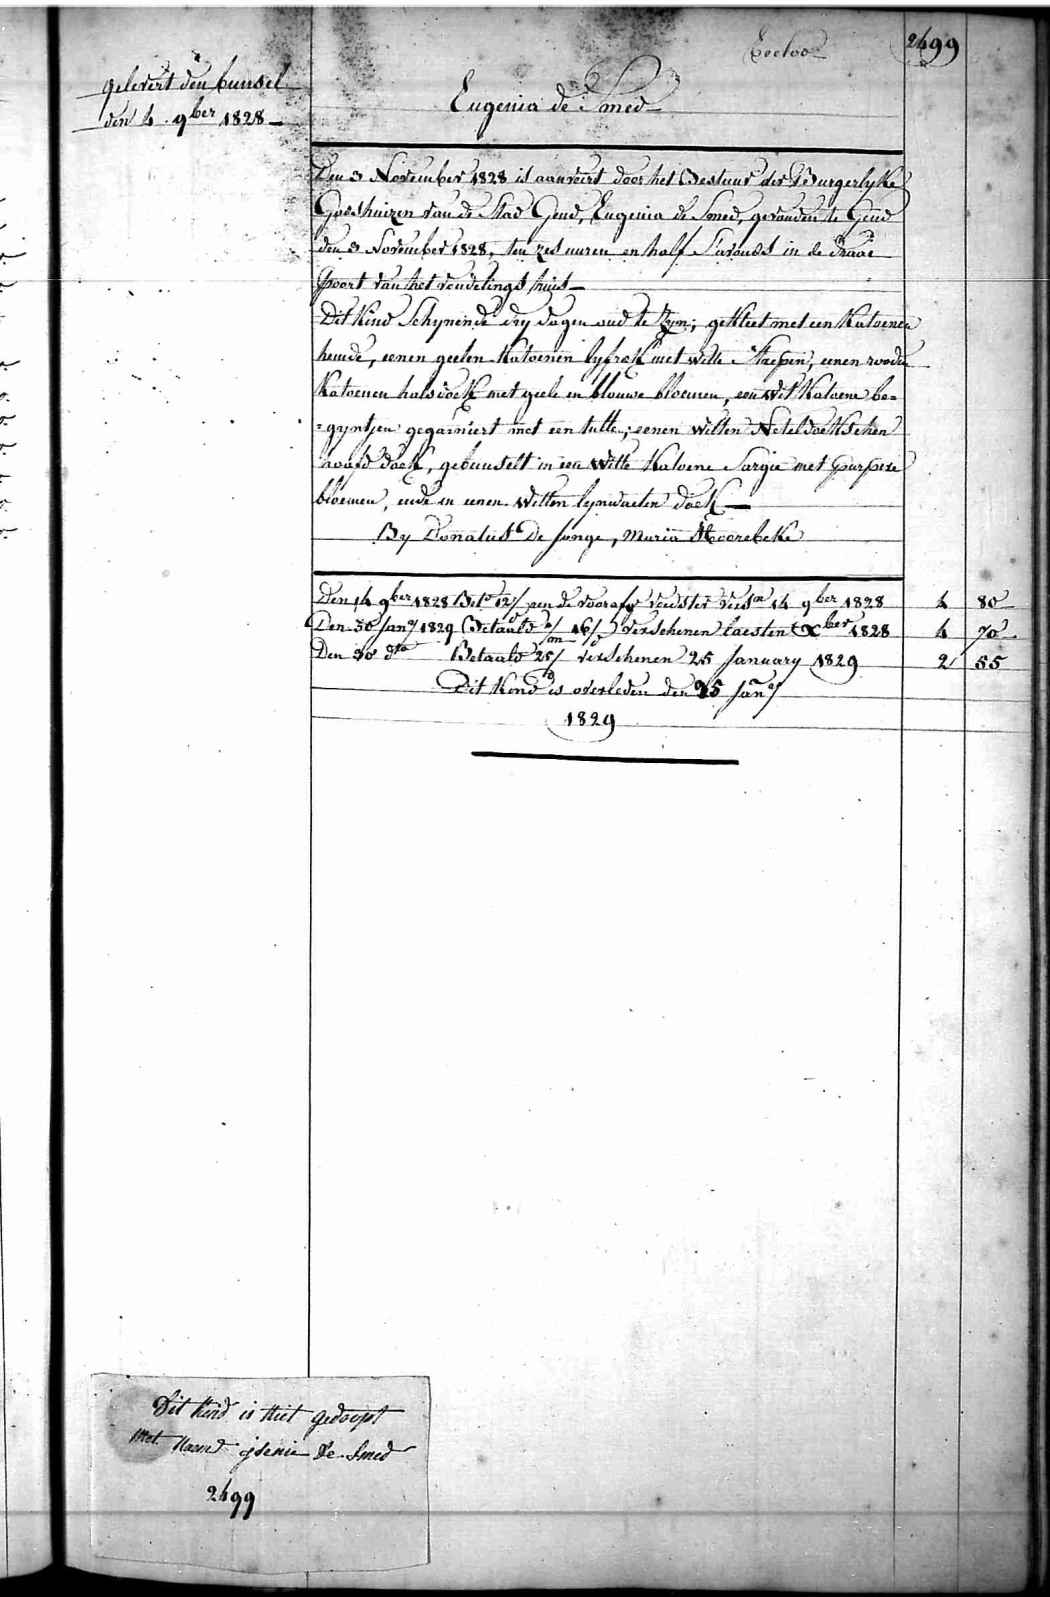 Eecloo
2499
gelevert den bunsel
den 4 9ber 1828
Eugenia de Smed
Den 3 November 1828 is aanveirt door het Bestuur der Burgerlyke
Godshuizen van de Stad Gend, Eugenia de Smed, gevonden te Gend
den 3 November 1828, ten zes uuren en half S'avonds in de Draai
poort van het vondelings huis
Dit Kind Schynende dry dagen oud te Zyn; gekleet met een Katoenen
hemde, eenen geelen Katoenen lyfrok met witte Streepen, eenen rooden
Katoenen halsdoek met geele en blouwe bloemen, een wit Katoene be=
=gyntjen gegarniert met een tulle; eenen witten Neteldoekschen
hoofd doek, gebunselt in een witte Katoene Sargie met purpere
bloemen, ende in eenen witten lynwaeten doek
By Donatus De Jonge, Maria Hoorebeke
Den 14 9ber 1828 Betd 12/ aen de voorafg 14 9ber 1828 4 80
Den 30 Jany 1829 Betaald 16/ verschenen laesten Xber 1828 4 70
Den 30 dto Betaald 25/ verschenen 25 January 1829 2 55
Dit Kind is overleden den 25 Jany
1829
Dit Kind is Niet gedoopt
Met Naeme De Smed
2499